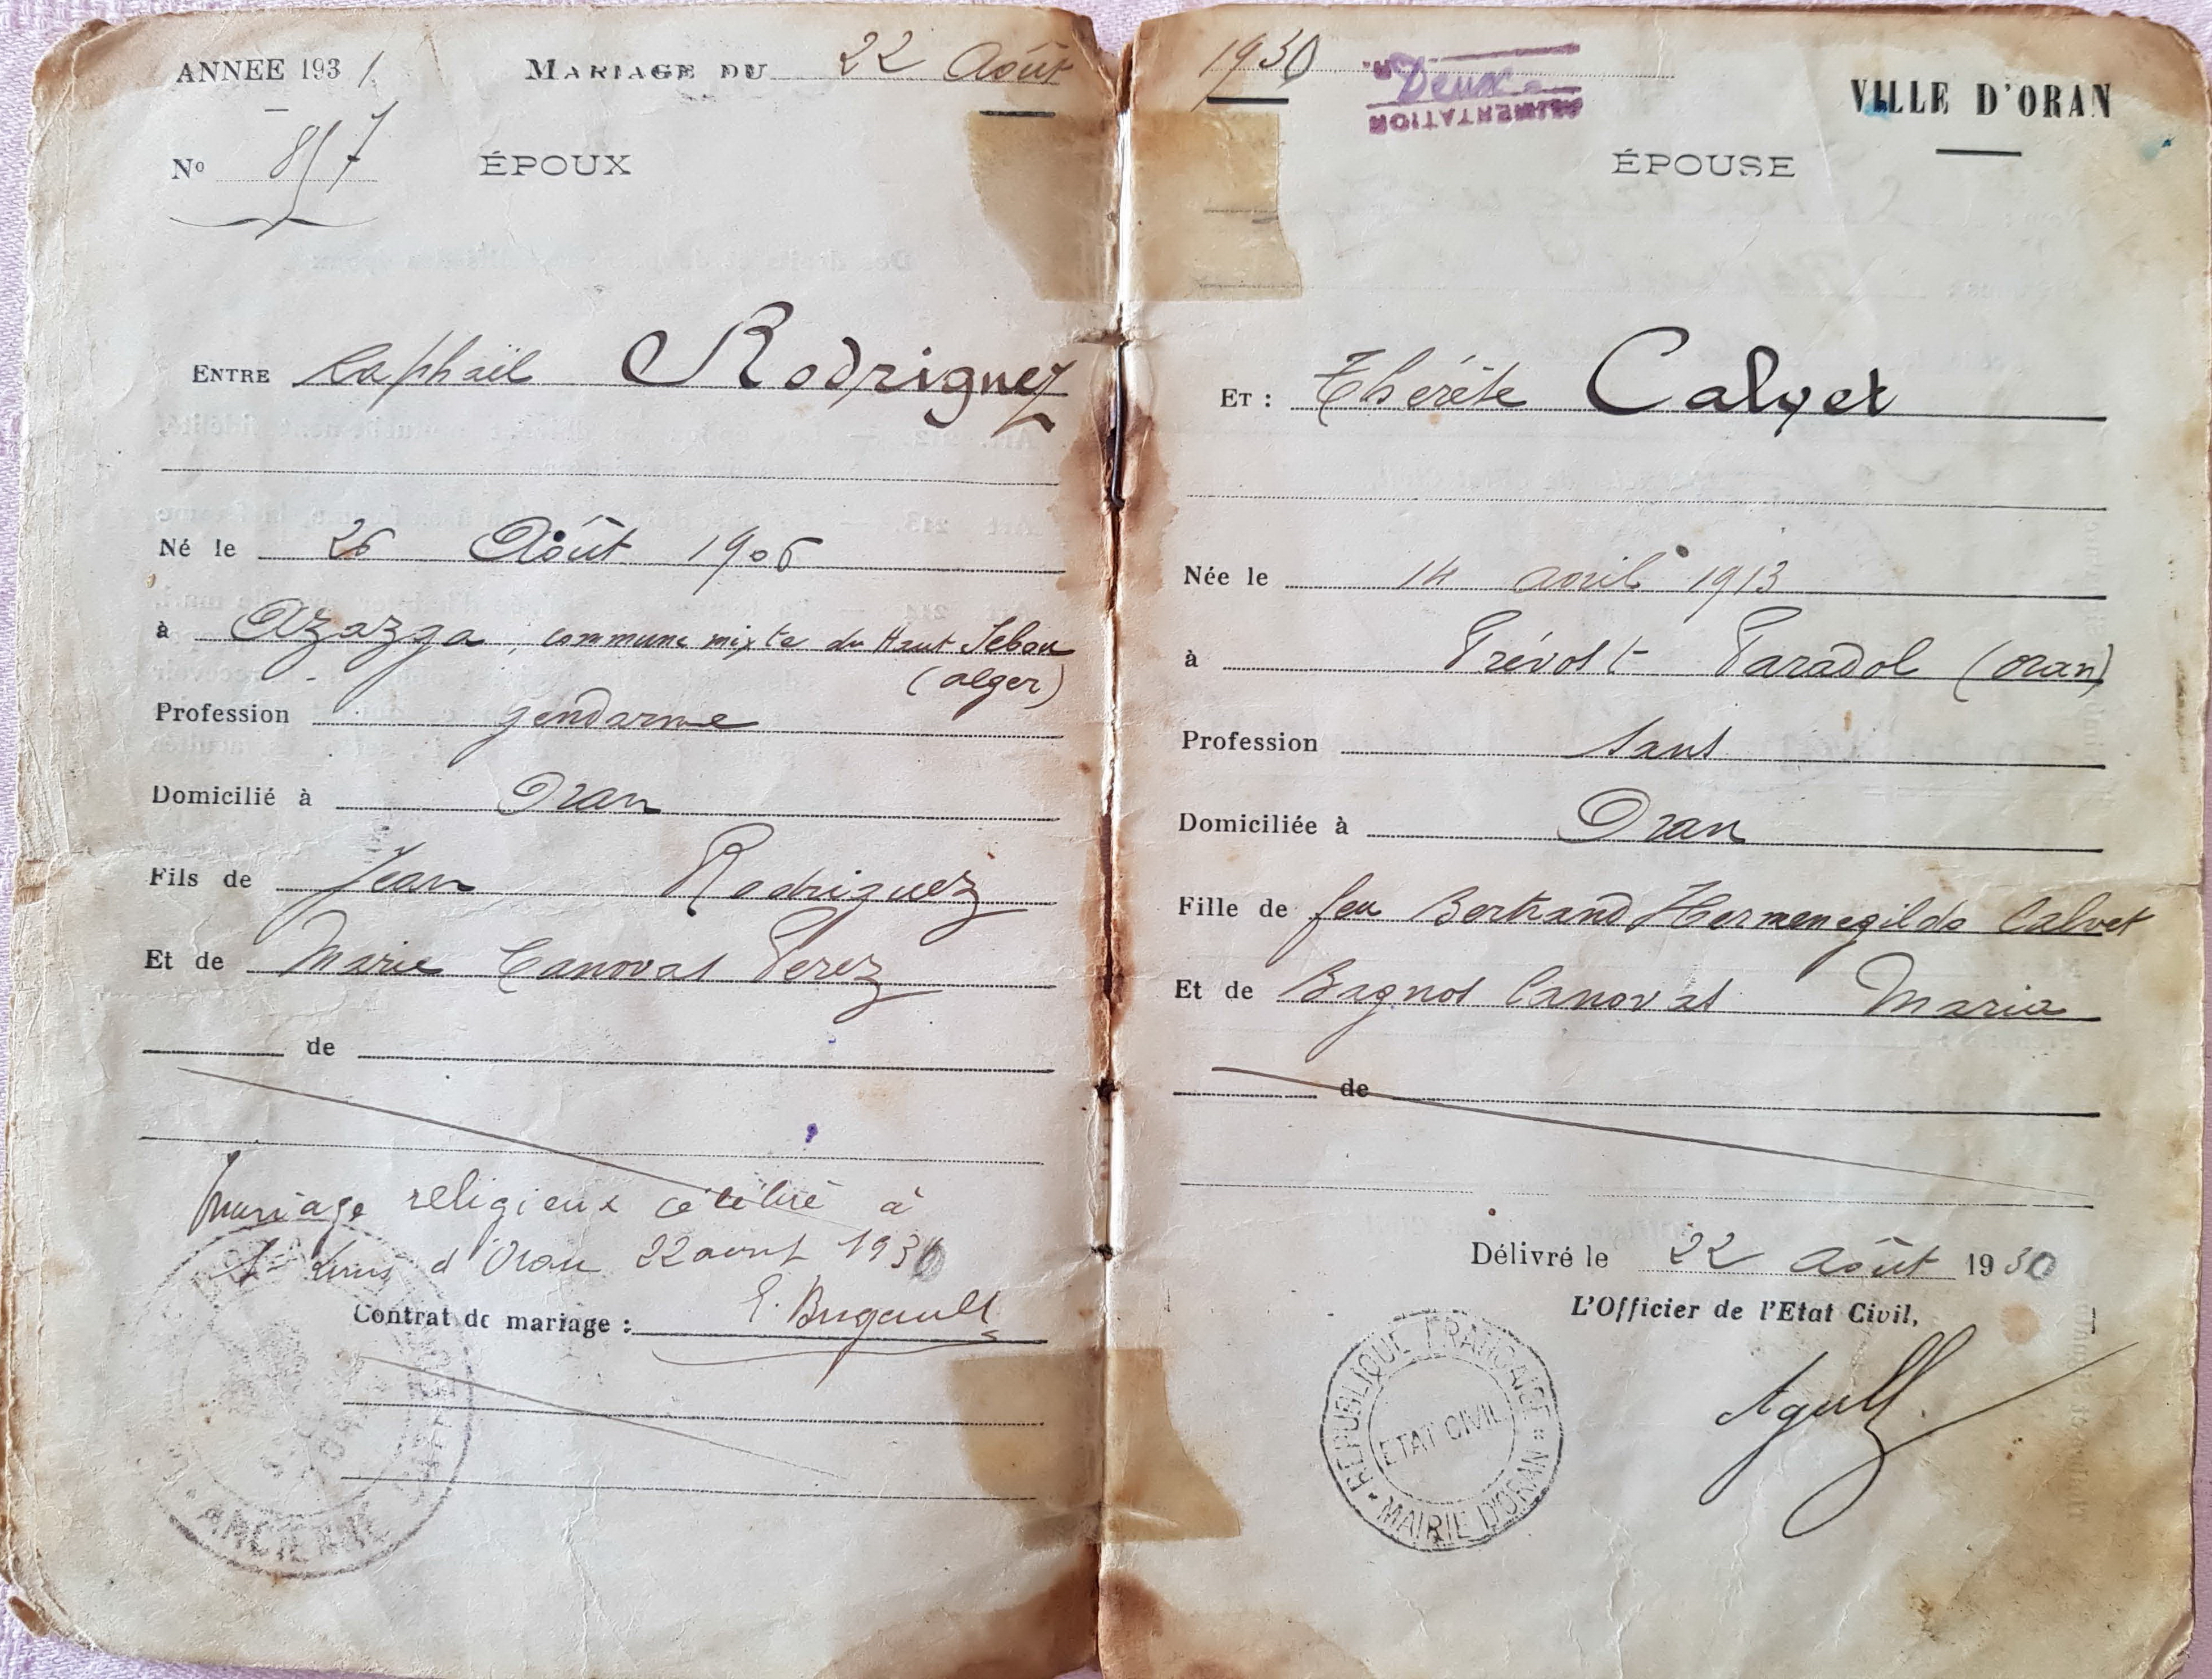 ANNEE 1931
MARIAGE DU 22 Août
Nº 857
ÉPOUX
ENTRE Raphaël Rodriguez
Né le 26 Août 1906
à Azazga, commune mixte du Haut Sebaou
(alger)
Profession gendarme
Domicilié à Oran
Fils de Jean Rodriguez
Et de Marie Canovas Perez
de
mariage religieux célébré à
St Louis d'Oran 22 aout 1930
Contrat de mariage :
E. Brigault
ANCIENNE
1930
Deux
ALIMENTATION
VILLE D'ORAN
ÉPOUSE
ET : Thérèse Calvet
Née le 14 avril 1913
à Prévost Paradol (Oran)
Profession sans
Domiciliée à Oran
Fille de feu Bertrand Hermenegilde Calvet
Et de Bagnos Canovas Maria
de
Délivré le 22 Août 1930
L'Officier de l'Etat Civil,
REPUBLIQUE FRANCAISE
ETAT CIVIL
MAIRIE D'ORAN